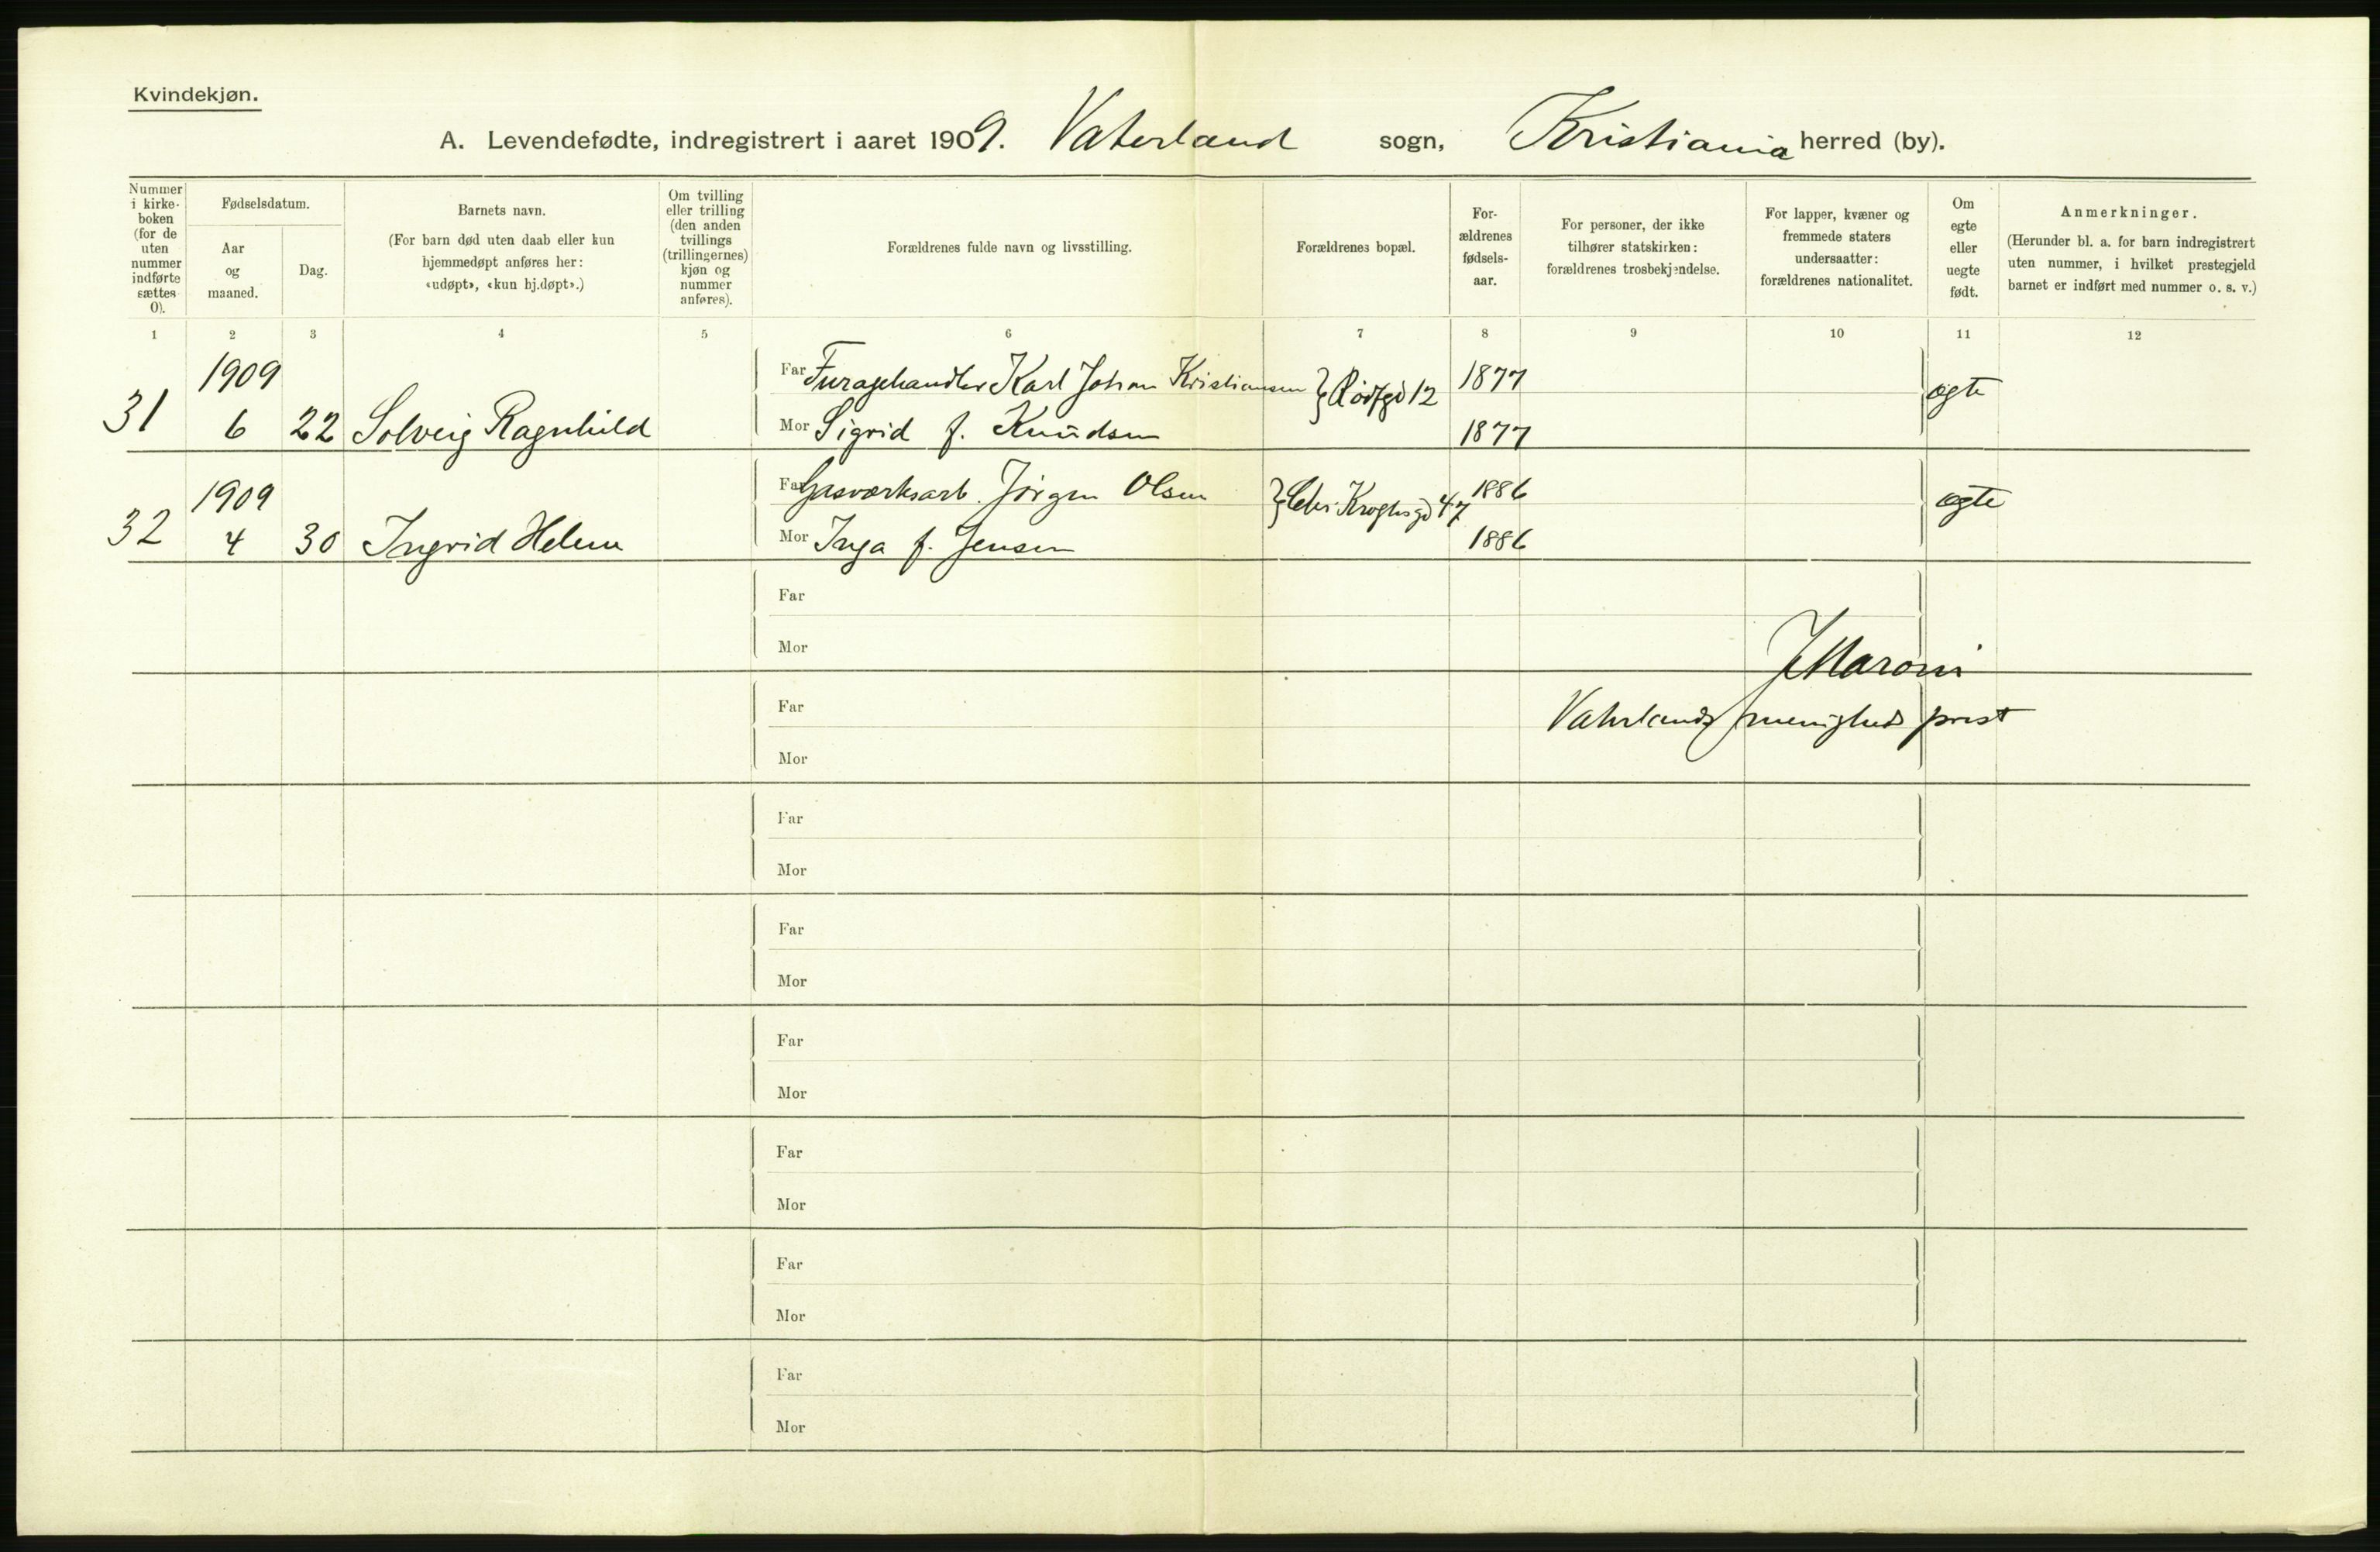 Kvindekjøn.
A. Levendefødte, indregistrert i aaret 1909. Vaterland sogn, Kristiania herred (by).
Nummer i kirke-boken (for de uten nummer indførte sættes 0).
Fødselsdatum.
Aar og maaned.
Dag.
Barnets navn.
(For barn død uten daab eller kun hjemmedøpt anføres her: «udøpt», «kun hj.døpt».)
Om tvilling eller trilling (den anden tvillings (trillingernes) kjøn og nummer anføres).
Forældrenes fulde navn og livsstilling.
Forældrenes bopæl.
For-ældrenes fødsels-aar.
For personer, der ikke tilhører statskirken: forældrenes trosbekjendelse.
For lapper, kvæner og fremmede staters undersaatter: forældrenes nationalitet.
Om egte eller uegte født.
Anmerkninger.
(Herunder bl. a. for barn indregistrert uten nummer, i hvilket prestegjeld barnet er indført med nummer o. s. v.)
1 2 3 4 5 6 7 8 9 10 11 12
1909 Far Furagehandler Karl Johan Kristiansen } 12 1877 ægte
31 6 22 Solveig Ragnhild Mor Sigrid f. Knudsen 1877
1909 Far Gasværksarb. Jörgen Olsen } Chr. Kroghsgd 47 1886 ægte
32 4 30 Ingrid Helene Mor Inga f. Jensen 1886
Far
Mor
JMaroni
Far
Vaterlands menigheds prest
Mor
Far
Mor
Far
Mor
Far
Mor
Far
Mor
Far
Mor
Far
Mor